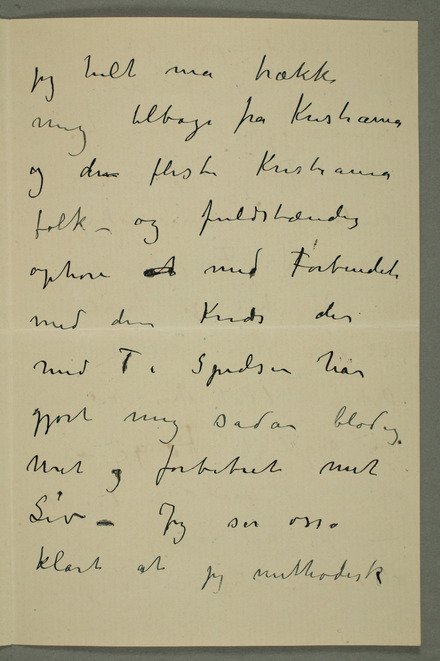 jeg helt må trække
mig tilbage fra Kristiania
og de fleste Kristiania
folk – og fuldstændig
ophøre med Forbindels
med den Kreds der
med T i Spidsen har
gjort mig sådan blodig
uret og forbitret mit
Liv – Jeg ser også
klart at jeg methodisk